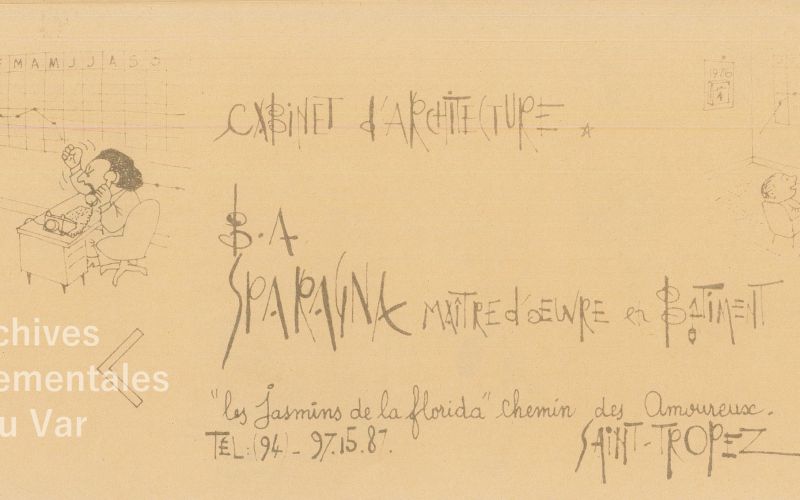 F M A M J J A S O
1980
4
CABINET d'ARCHITECTURE
B.A
SPARAGNA MAÎTRE d'ŒUVRE en BÂTIMENT
"les Jasmins de la florida" chemin des Amoureux.
TÉL: (94) - 97.15.87.
SAINT-TROPEZ
chives
ementales
u Var